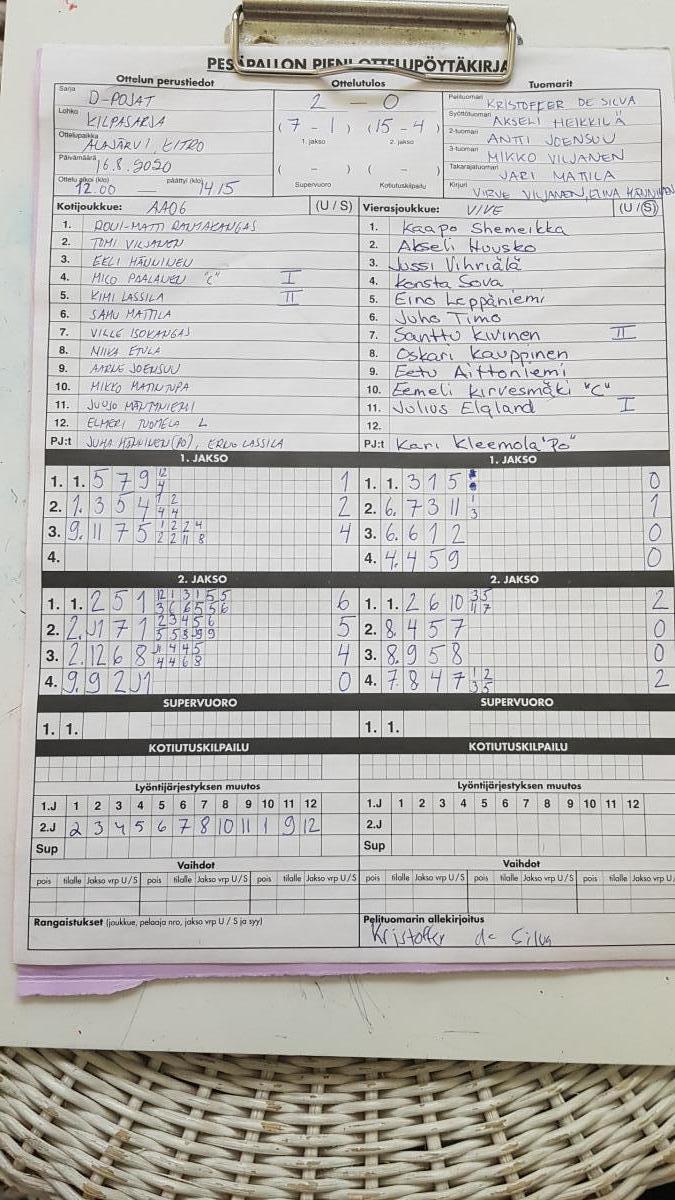 PESÄPALLON PIENI OTTELUPÖYTÄKIRJA
Ottelun perustiedot
Ottelutulos
Tuomarit
Sarja D-POJAT
Lohko KILPASARJA
Ottelupaikka ALAJÄRVI, KITRO
Päivämäärä 16.8.2020
Ottelu alkoi (klo) 12.00 — päättyi (klo) 1415
2 — 0
(7 - 1) (15 - 4)
1. jakso 2. jakso
( - ) ( - )
Supervuoro Kotiutuskilpailu
Pelituomari KRISTOFFER DE SILVA
Syöttötuomari AKSELI HEIKKILÄ
2-tuomari ANTTI JOENSUU
3-tuomari MIKKO VILJANEN
Takarajatuomari JARI MATILA
Kirjuri VIRVE VILJANEN, ELINA HÄNNINEN
Kotijoukkue: AA06 (U / S)
1. RONI-MATTI RAUMAKANGAS
2. TOMI VILJANEN
3. EELI HÄNNINEN
4. MICO PAALANEN "C" I
5. KIMI LASSILA II
6. SAMU MATTILA
7. VILLE ISOKANGAS
8. NIILA ETULA
9. AARNE JOENSUU
10. MIKKO MATINTUPA
11. JUUSO MÄNTYNIEMI
12. ELMERI TUOMELA L
PJ:t JUHA HÄNNINEN (PO), ERNO LASSILA
Vierasjoukkue: VIVE (U / S)
1. Kaapo Shemeikka
2. Akseli Housko
3. Jussi Vihriälä
4. Konsta Sova
5. Eino Leppäniemi
6. Juho Timo
7. Santtu Kivinen II
8. Oskari Kauppinen
9. Eetu Aittoniemi
10. Eemeli Kirvesmäki "C"
11. Julius Elgland I
12.
PJ:t Kari Kleemola "Po"
1. JAKSO
1. 1. 5 7 9 12 1
4
2. 1. 3 5 4 1 2 2
4 4
3. 9. 11 7 5 1 2 2 4 4
2 2 11 8
4.
1. JAKSO
1. 1. 3 1 5 0
2. 6. 7 3 11 1 1
3
3. 6. 6 1 2 0
4. 4. 4 5 9 0
2. JAKSO
1. 1. 2 5 1 12 1 3 1 5 5 6
3 6 6 5 5 6
2. 2. 11 7 1 2 3 4 5 6 5
5 5 8 9 9
3. 2. 12 6 8 11 4 4 5 4
4 4 6 8
4. 9. 9 2 11 0
2. JAKSO
1. 1. 2 6 10 3 5 2
11 7
2. 8. 4 5 7 0
3. 8. 9 5 8 0
4. 7. 8 4 7 1 2 2
3 5
SUPERVUORO
1. 1.
SUPERVUORO
1. 1.
KOTIUTUSKILPAILU
KOTIUTUSKILPAILU
Lyöntijärjestyksen muutos
1.J 1 2 3 4 5 6 7 8 9 10 11 12
2.J 2 3 4 5 6 7 8 10 11 1 9 12
Sup
Lyöntijärjestyksen muutos
1.J 1 2 3 4 5 6 7 8 9 10 11 12
2.J
Sup
Vaihdot
pois tilalle Jakso vrp U / S pois tilalle Jakso vrp U / S pois tilalle Jakso vrp U / S
Vaihdot
pois tilalle Jakso vrp U / S pois tilalle Jakso vrp U / S pois tilalle Jakso vrp U
Rangaistukset (joukkue, pelaaja nro, jakso vrp U / S ja syy)
Pelituomarin allekirjoitus
Kristoffer de Silva